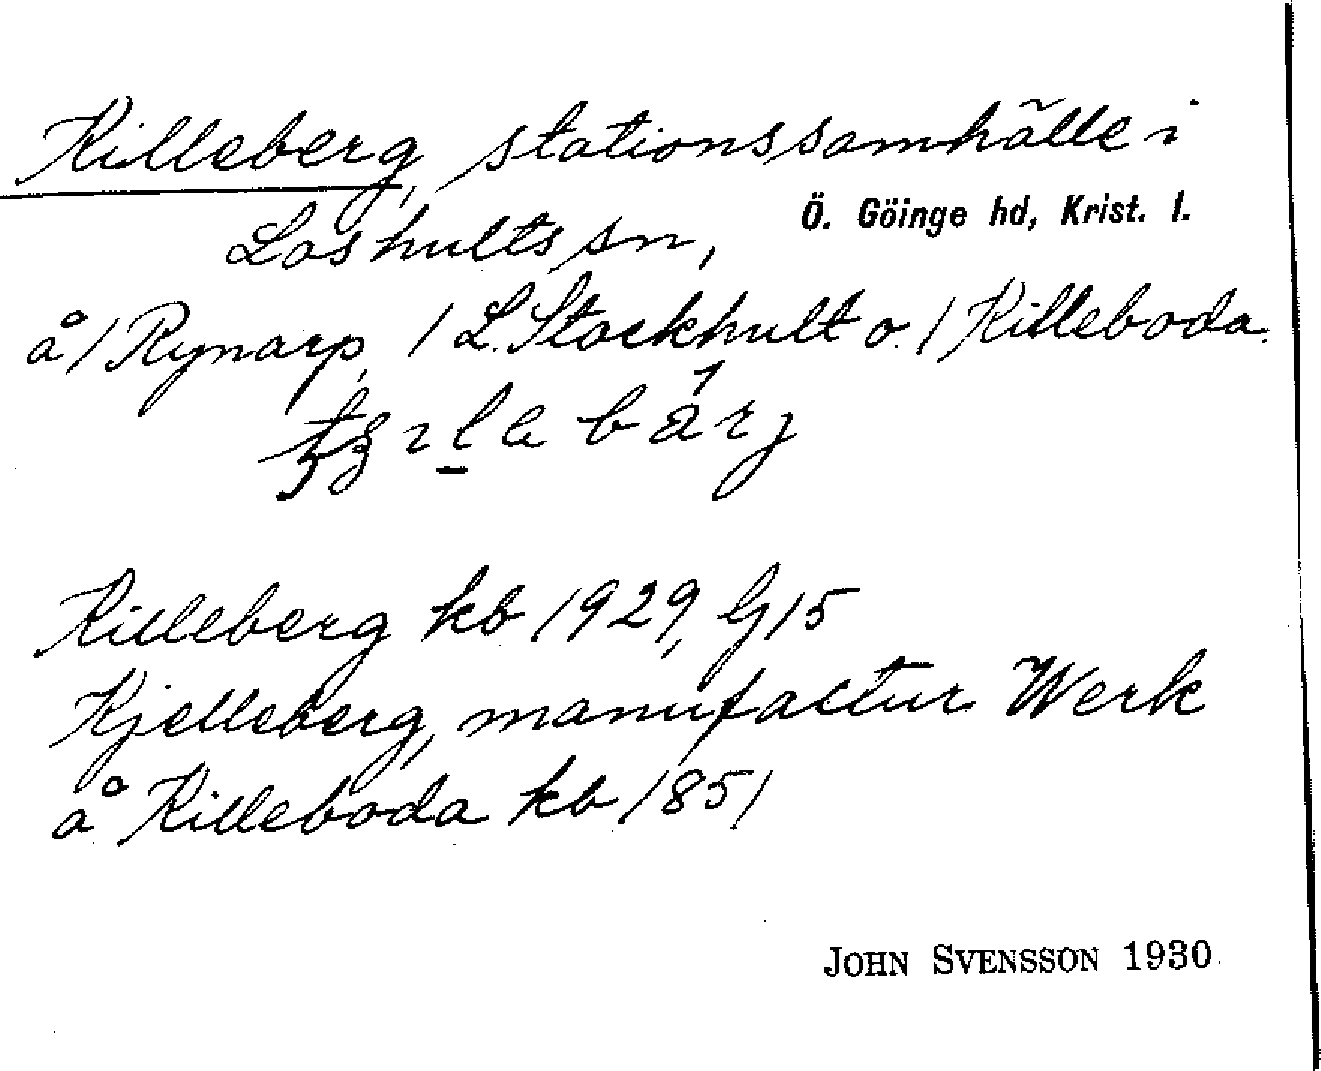 Killeberg, stationssamhälle i
Loshults sn, Ö. Göinge hd, Krist. l.
å 1 Rynarp, 1 L. Stockhult o. 1 Killeboda.
Killeberg kb 1929, G15
Kjelleberg, manufactur Werk
å Killeboda kb 1851
JOHN SVENSSON 1930